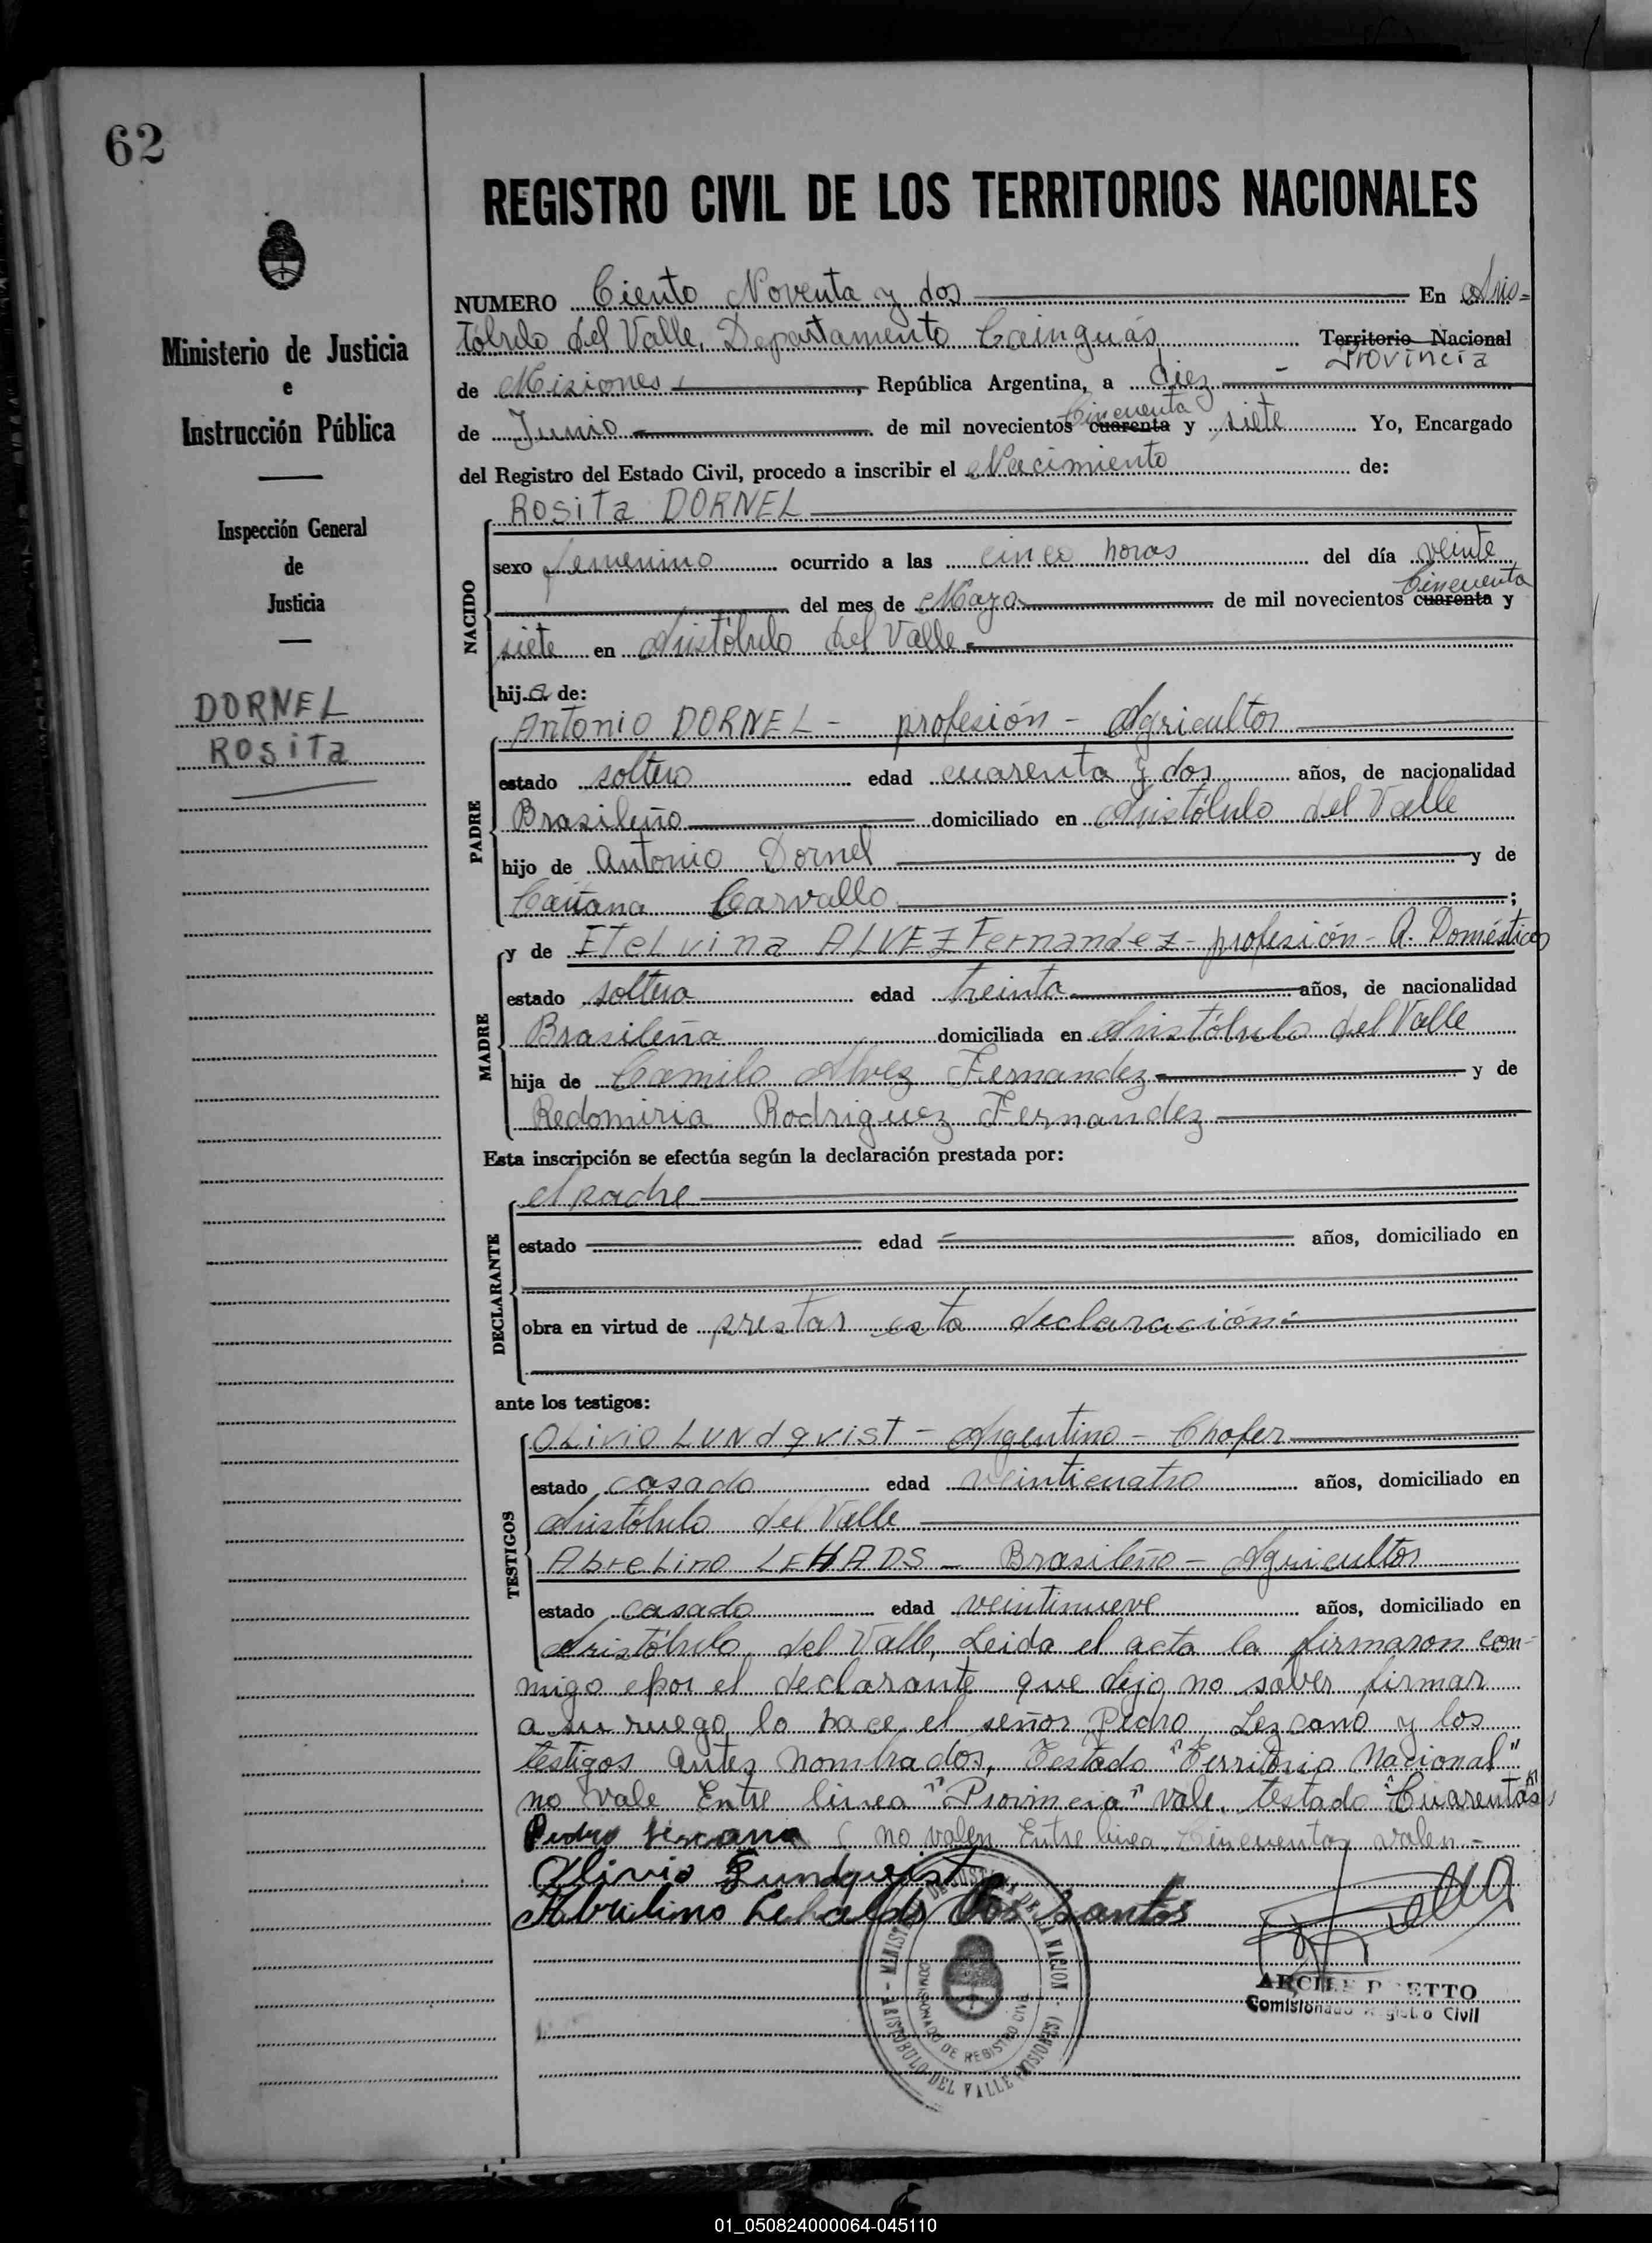 62
REGISTRO CIVIL DE LOS TERRITORIOS NACIONALES
Ministerio de Justicia
e
Instrucción Pública
Inspección General
de
Justicia
DORNEL
Rosita
NUMERO Ciento Noventa y dos En Aris=
tóbulo del Valle, Departamento Cainguás Territorio Nacional
Provincia
de Misiones, República Argentina, a diez
de Junio de mil novecientos cuarenta Cincuenta y siete Yo, Encargado
del Registro del Estado Civil, procedo a inscribir el Nacimiento de:
NACIDO
Rosita DORNEL
sexo femenino ocurrido a las cinco horas del día veinte
del mes de Mayo de mil novecientos cuarenta Cincuenta y
siete en Aristóbulo del Valle
hija de:
PADRE
Antonio DORNEL - profesión - Agricultor
estado soltero edad cuarenta y dos años, de nacionalidad
Brasileño domiciliado en Aristóbulo del Valle
hijo de Antonio Dornel y de
Carvallo;
MADRE
y de Etelvina ALVEZ Fernandez - profesión - Q. Domésticos
estado soltera edad treinta años, de nacionalidad
Brasileña domiciliada en Aristóbulo del Valle
hija de Camilo Alvez Fernandez y de
Redomiria Rodriguez Fernandez
Esta inscripción se efectúa según la declaración prestada por:
DECLARANTE
el padre
estado edad años, domiciliado en
obra en virtud de prestar esta declaración
ante los testigos:
TESTIGOS
OLivio LUNdqvist - Argentino - Chofer
estado casado edad veinticuatro años, domiciliado en
Aristóbulo del Valle
Abrelino LEHADS - Brasileño - Agricultor
estado casado edad veintinueve años, domiciliado en
Aristóbulo del Valle, Leida el acta la firmaron con-
migo e por el declarante que dijo no saber firmar
a su ruego lo hace el señor Pedro Lezcano y los
testigos antes nombrados, Testado "Territorio Nacional"
no vale Entre linea "Provincia" vale. testado "Cuarentas"
Pedro Lezcano no valen Entre linea Cincuentas valen -
Olivio Lundqvist
Abrilino Dos Santos
MINISTERIO DE JUSTICIA DE LA NACION
COMISIONADO DE REGISTRO CIVIL
ARISTOBULO DEL VALLE (MISIONES)
Comisionado Registro Civil
01_050824000064-045110